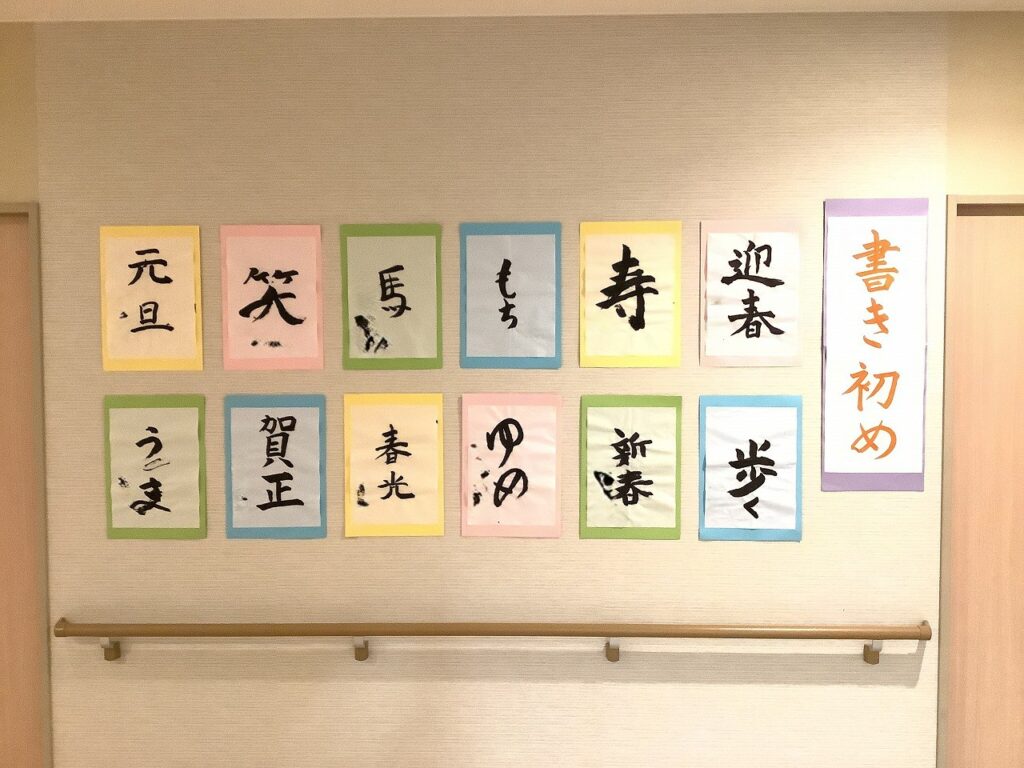 書き初め
迎春
寿
もち
馬
笑
元旦
歩く
新春
ゆめ
春光
賀正
うま